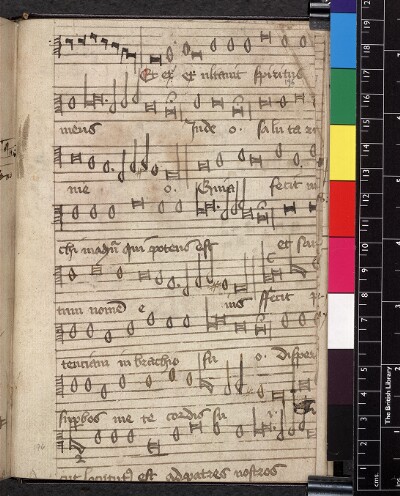 Et ex ex ultavit spiritus
meus In deo o. salu ta ri
me o. Quia fecit m
chi magn qui potens est et san
tum nomē e ius ffecit
tenciam in brachio su o. disper
sit superbos me te cordis su i.
cut locutus est ad patres nostros
The British Library
cms.
1 2 3 4 5 6 7 8 9 10 11 12 13 14 15 16 17 18 19